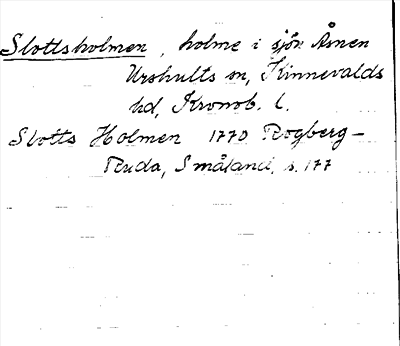 Slottsholmen, holme i sjön Åsnen
Urshults sn, Kinnevalds
hd, Kronob. l.
Slotts Holmen 1770 Rogberg-
Ruda, Småland, s. 177